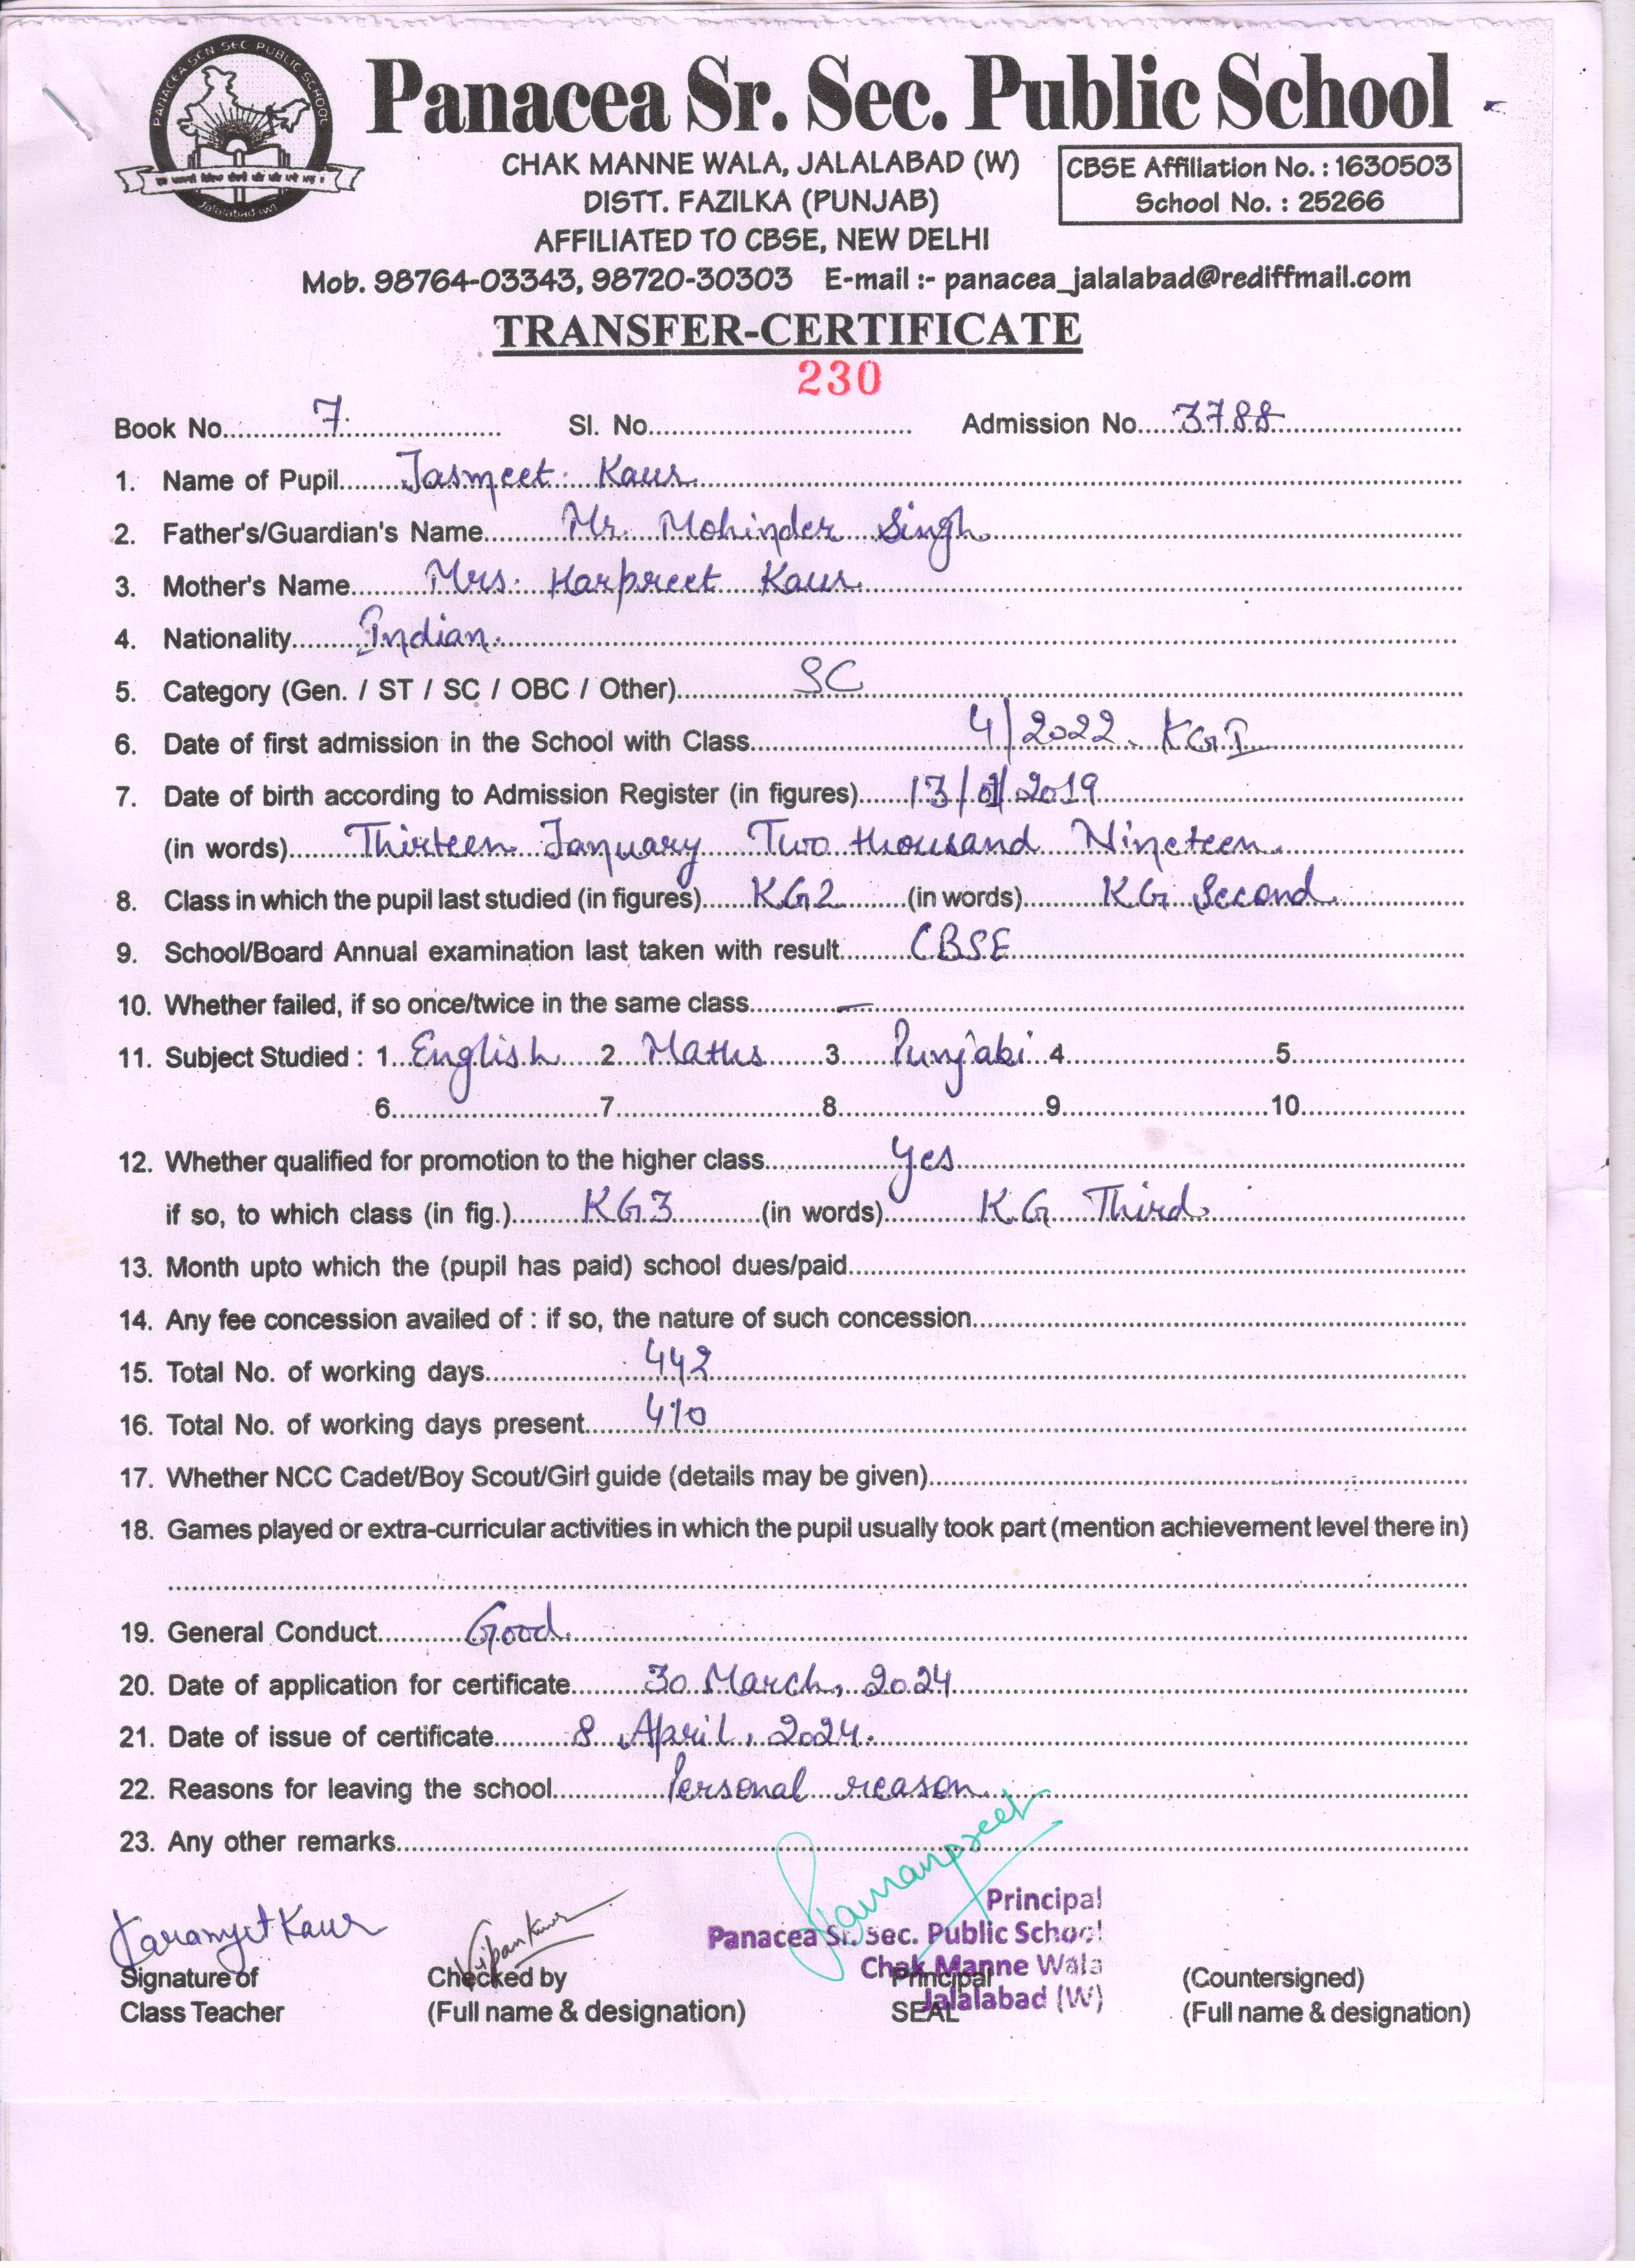 PANACEA SEN SEC PUBLIC SCHOOL
Jalalabad (W)
Panacea Sr. Sec. Public School
CHAK MANNE WALA, JALALABAD (W)
DISTT. FAZILKA (PUNJAB)
AFFILIATED TO CBSE, NEW DELHI
CBSE Affiliation No. : 1630503
School No. : 25266
Mob. 98764-03343, 98720-30303 E-mail :- panacea_jalalabad@rediffmail.com
TRANSFER-CERTIFICATE
230
Book No. 7 Sl. No. Admission No. 3788
1. Name of Pupil Jasmeet Kaur
2. Father's/Guardian's Name Mr. Mohinder Singh
3. Mother's Name Mrs. Harpreet Kaur
4. Nationality Indian
5. Category (Gen. / ST / SC / OBC / Other) SC
6. Date of first admission in the School with Class 4/2022 KG I
7. Date of birth according to Admission Register (in figures) 13/01/2019
(in words) Thirteen January Two thousand Nineteen
8. Class in which the pupil last studied (in figures) KG2 (in words) KG Second
9. School/Board Annual examination last taken with result CBSE
10. Whether failed, if so once/twice in the same class —
11. Subject Studied : 1 English 2 Maths 3 Punjabi 4 5
6 7 8 9 10
12. Whether qualified for promotion to the higher class yes
if so, to which class (in fig.) KG3 (in words) KG Third
13. Month upto which the (pupil has paid) school dues/paid
14. Any fee concession availed of : if so, the nature of such concession
15. Total No. of working days 442
16. Total No. of working days present 410
17. Whether NCC Cadet/Boy Scout/Girl guide (details may be given)
18. Games played or extra-curricular activities in which the pupil usually took part (mention achievement level there in)
19. General Conduct Good
20. Date of application for certificate 30 March, 2024
21. Date of issue of certificate 8 April, 2024.
22. Reasons for leaving the school Personal reason
23. Any other remarks
Principal
Panacea Sr. Sec. Public School
Chak Manne Wala
Jalalabad (W)
Signature of Checked by Principal (Countersigned)
Class Teacher (Full name & designation) SEAL (Full name & designation)